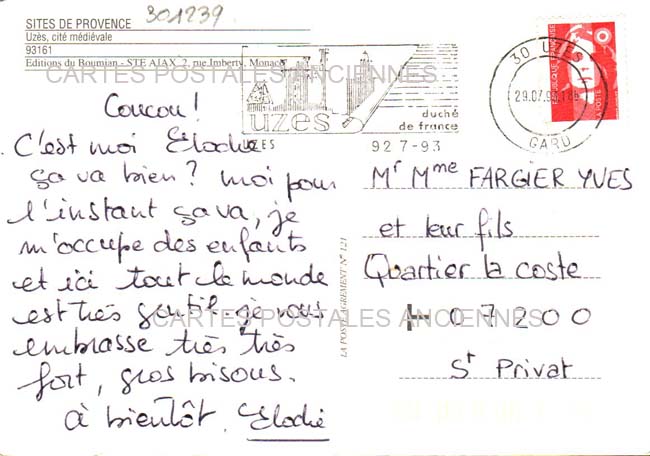 301239
SITES DE PROVENCE
Uzès, cité médiévale
93161
Editions du Roumian - STE AJAX, 2, rue Imberty, Monaco
CARTES POSTALES ANCIENNES
Coucou!
C'est moi Elodie
ça va bien? moi pour
l'instant ça va, je
m'occupe des enfants
et ici tout le monde
est très gentil. je vous
embrasse très très
fort, gros bisous.
à bientôt. Elodie
uzes
duché
de france
92 7-93
30 UZES
29.07.9
GARD
REPUBLIQUE FRANÇAISE
LA POSTE
LA POSTE AGREMENT N° 121
Mr Mme FARGIER YVES
et leur fils
Quartier la coste
07200
St Privat
CARTES POSTALES ANCIENNES